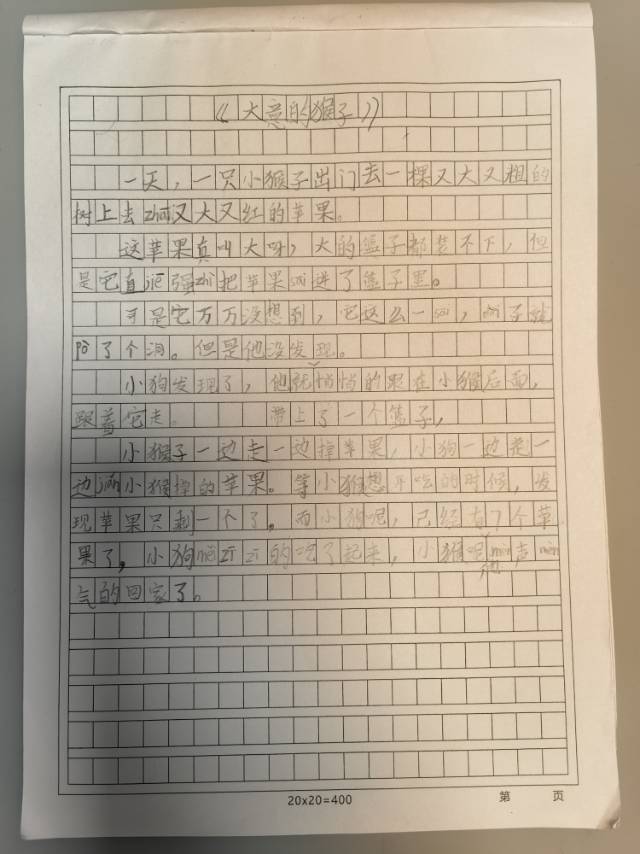 《大意的猴子》
一天，一只小猴子出门去一棵又大又粗的
树上去zhāi又大又红的苹果。
这苹果真叫大呀，大的篮子都装不下，但
是它直jiē强zhì把苹果sāi进了篮子里。
可是它万万没想到，它这么一sāi，
了个洞。但是他没发现。
小狗发现了，他就悄悄的跟在小猴后面，
跟着它走。带上了一个篮子，
小猴子一边走一边掉苹果，小狗一边走一
边jiǎn小猴掉的苹果。等小猴想要吃的时候，发
现苹果只剩一个了，而小狗呢，已经有7个苹
果了，小狗zī zī的吃了起来，小猴呢
气的回家了。
20x20=400
第 页